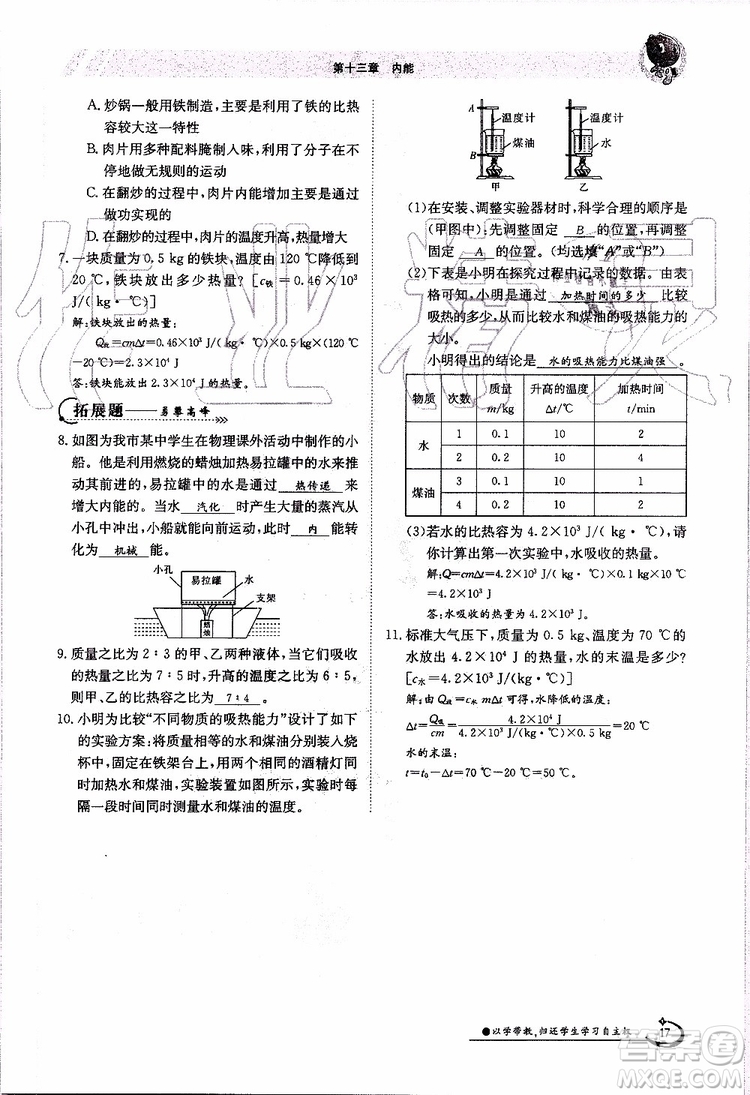 第十三章　内能
A. 炒锅一般用铁制造，主要是利用了铁的比热
容较大这一特性
B. 肉片与多种配料腌制入味，利用了分子在不
停地做无规则的运动
C. 在翻炒的过程中，肉片内能增加主要是通过
做功实现的
D. 在翻炒的过程中，肉片的温度升高，热量增大
7. 一块质量为 0.5 kg 的铁块，温度由 120 ℃降到
20 ℃，铁块放出多少热量？[c铁=0.46×10³
J/(kg·℃)]
解：铁块放出的热量：
Q放=cmΔt=0.46×10³ J/(kg·℃)×0.5 kg×(120 ℃
-20 ℃)=2.3×10⁴ J
答：铁块能放出2.3×10⁴ J的热量。
拓展题——勇攀高峰
8. 如图为我市某中学生在物理课外活动中制作的小
船。他是利用燃烧的蜡烛加热易拉罐中的水来推
动其前进的，易拉罐中的水是通过 热传递 来
增大内能的。当水 汽化 时产生大量的蒸汽从
小孔中冲出，小船就能向前运动，此时 内 能转
化为 机械 能。
小孔
易拉罐
水
支架
蜡烛
9. 质量之比为 2∶3 的甲、乙两种液体，当它们吸收
的热量之比为 7∶5，升高的温度之比为 6∶5，
则甲、乙的比热容之比为 7∶4 。
10. 小明为比较“不同物质的吸热能力”设计了如下
的实验方案：将质量相等的水和煤油分别装入烧
杯中，固定在铁架台上，用两个相同的酒精灯同
时加热水和煤油，实验装置如图所示，实验时每
隔一段时间同时测量水和煤油的温度。
A
温度计
煤油
B
甲
温度计
水
乙
(1)在安装、调整实验器材时，科学合理的顺序是
(甲图中)：先调整固定 B 的位置，再调整
固定 A 的位置。(均选填“A”或“B”)
(2)下表是小明在探究过程中记录的数据。由表
格可知，小明是通过 加热时间的多少 比较
吸热的多少，从而比较水和煤油的吸热能力的
大小。
小明得出的结论是 水的吸热能力比煤油强 。
物质 次数 质量 m/kg 升高的温度 Δt/℃ 加热时间 t/min
水 1 0.1 10 2
2 0.2 10 4
煤油 3 0.1 10 1
4 0.2 10 2
(3)若水的比热容为 4.2×10³ J/(kg·℃)，请
你计算出第一次实验中，水吸收的热量。
解：Q=cmΔt=4.2×10³ J/(kg·℃)×0.1 kg×10 ℃
=4.2×10³ J
答：水吸收的热量为4.2×10³ J。
11. 标准大气压下，质量为 0.5 kg、温度为 70 ℃的
水放出 4.2×10⁴ J 的热量，水的末温是多少？
[c水=4.2×10³ J/(kg·℃)]
解：由Q放=c水 mΔt可得，水降低的温度：
Δt=Q放/cm=4.2×10⁴ J/4.2×10³ J/(kg·℃)×0.5 kg=20 ℃
水的末温：
t=t₀-Δt=70 ℃-20 ℃=50 ℃。
●以学带教，归还学生学习自主权
17
答案圈
MXQE.COM